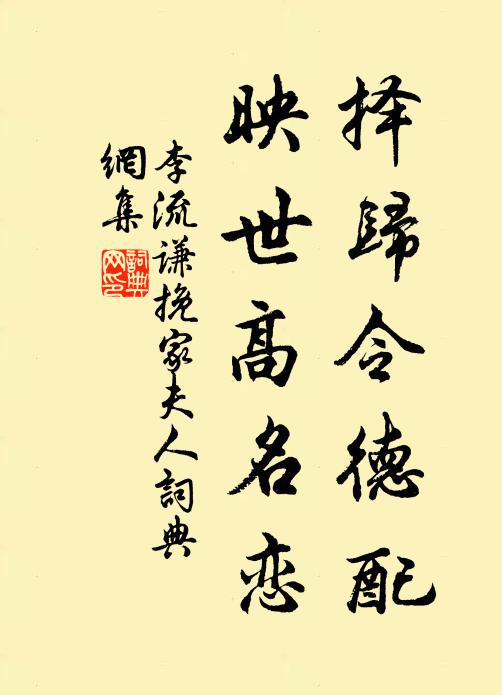 择歸令德配
映世高名恋
李流谦挽家夫人詞典
網集
詞典网印